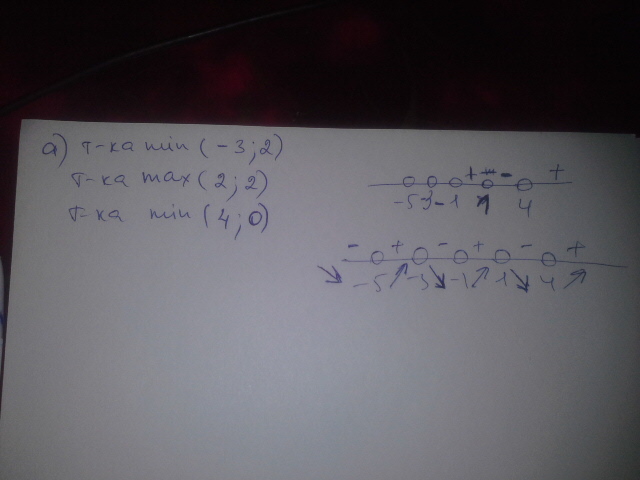 а) т-ка min (-3;2)
т-ка max (2;2)
т-ка min (4;0)
+ - +
-5 3 -1 1 4
- + - + - +
-5 -3 -1 1 4